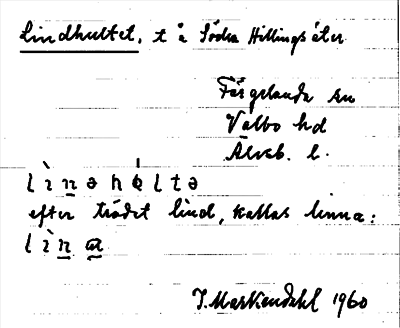 Lindhultet, t å Södra Hillingsäter
Färgelanda sn
Valbo hd
Älvsb. l.
l ì n ə h ů l t ə
efter trädet lind, kallas linna:
l ì n a
J. Markendahl 1960